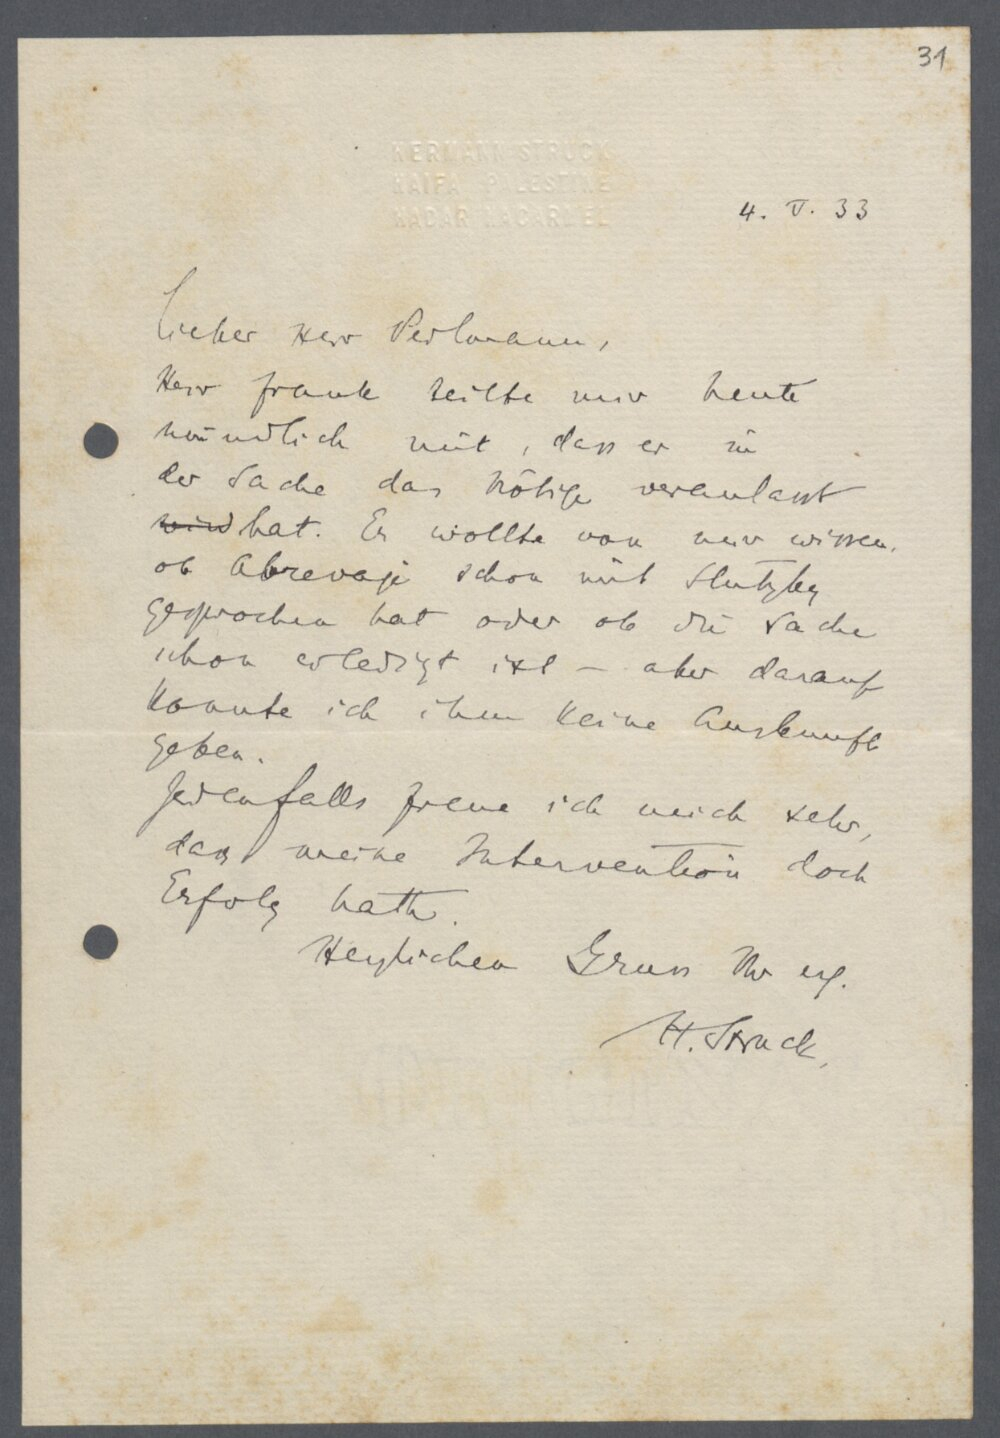 31
HERMANN STRUCK
HAIFA PALESTINE
HADAR HACARMEL
4. V. 33
Lieber Herr Perlmann,
Herr Frank teilte mir heute
mündlich mit, dass er in
der Sache das Nötige veranlasst
wird hat. Er wollte von mir wissen,
ob Abrevaje schon mit Slutzky
gesprochen hat oder ob die Sache
schon erledigt ist – aber darauf
konnte ich ihm keine Auskunft
geben.
Jedenfalls freue ich mich sehr,
dass meine Intervention doch
Erfolg hatte.
Herzlichen Gruss Ihr erg.
H. Struck.